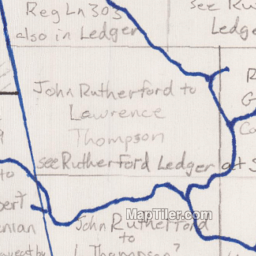 Reg Ln 303
also in Ledger
see Ru
Ledge
John Rutherford to
Lawrence
Thompson
see Rutherford Ledger at S
to
bert
nian
John Rutherford
to
L Thompson?
R
G
Co
MapTiler.com